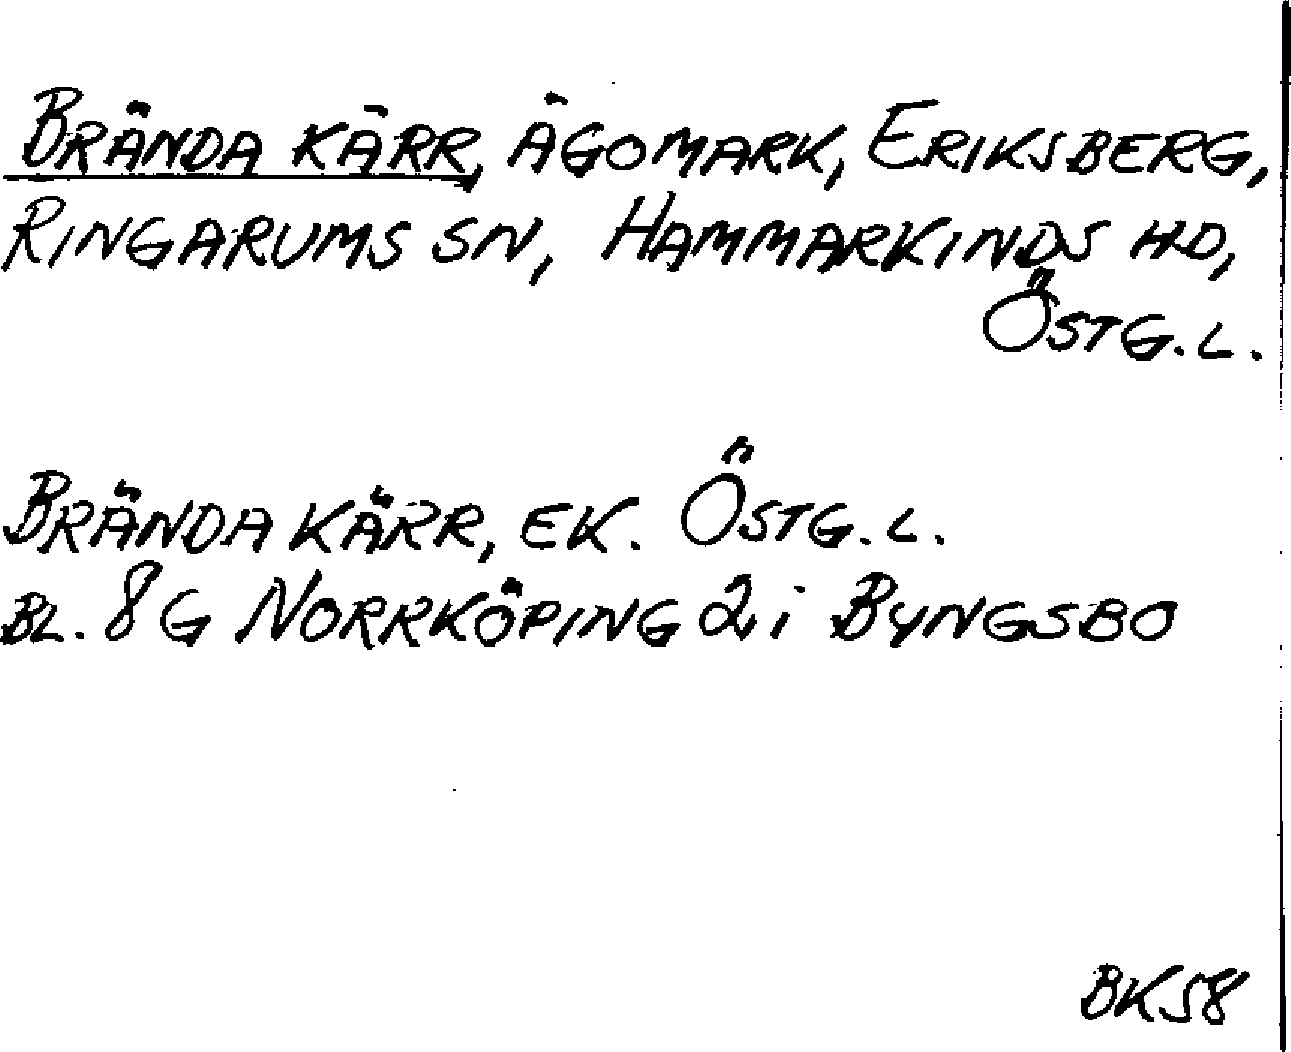 BRÄNDA KÄRR, ÄGOMARK, ERIKSBERG,
RINGARUMS SN, HAMMARKINDS HD,
ÖSTG.L.
BRÄNDA KÄRR, EK. ÖSTG.L.
BL. 8G NORRKÖPING 2i BYNGSBO
BKS8